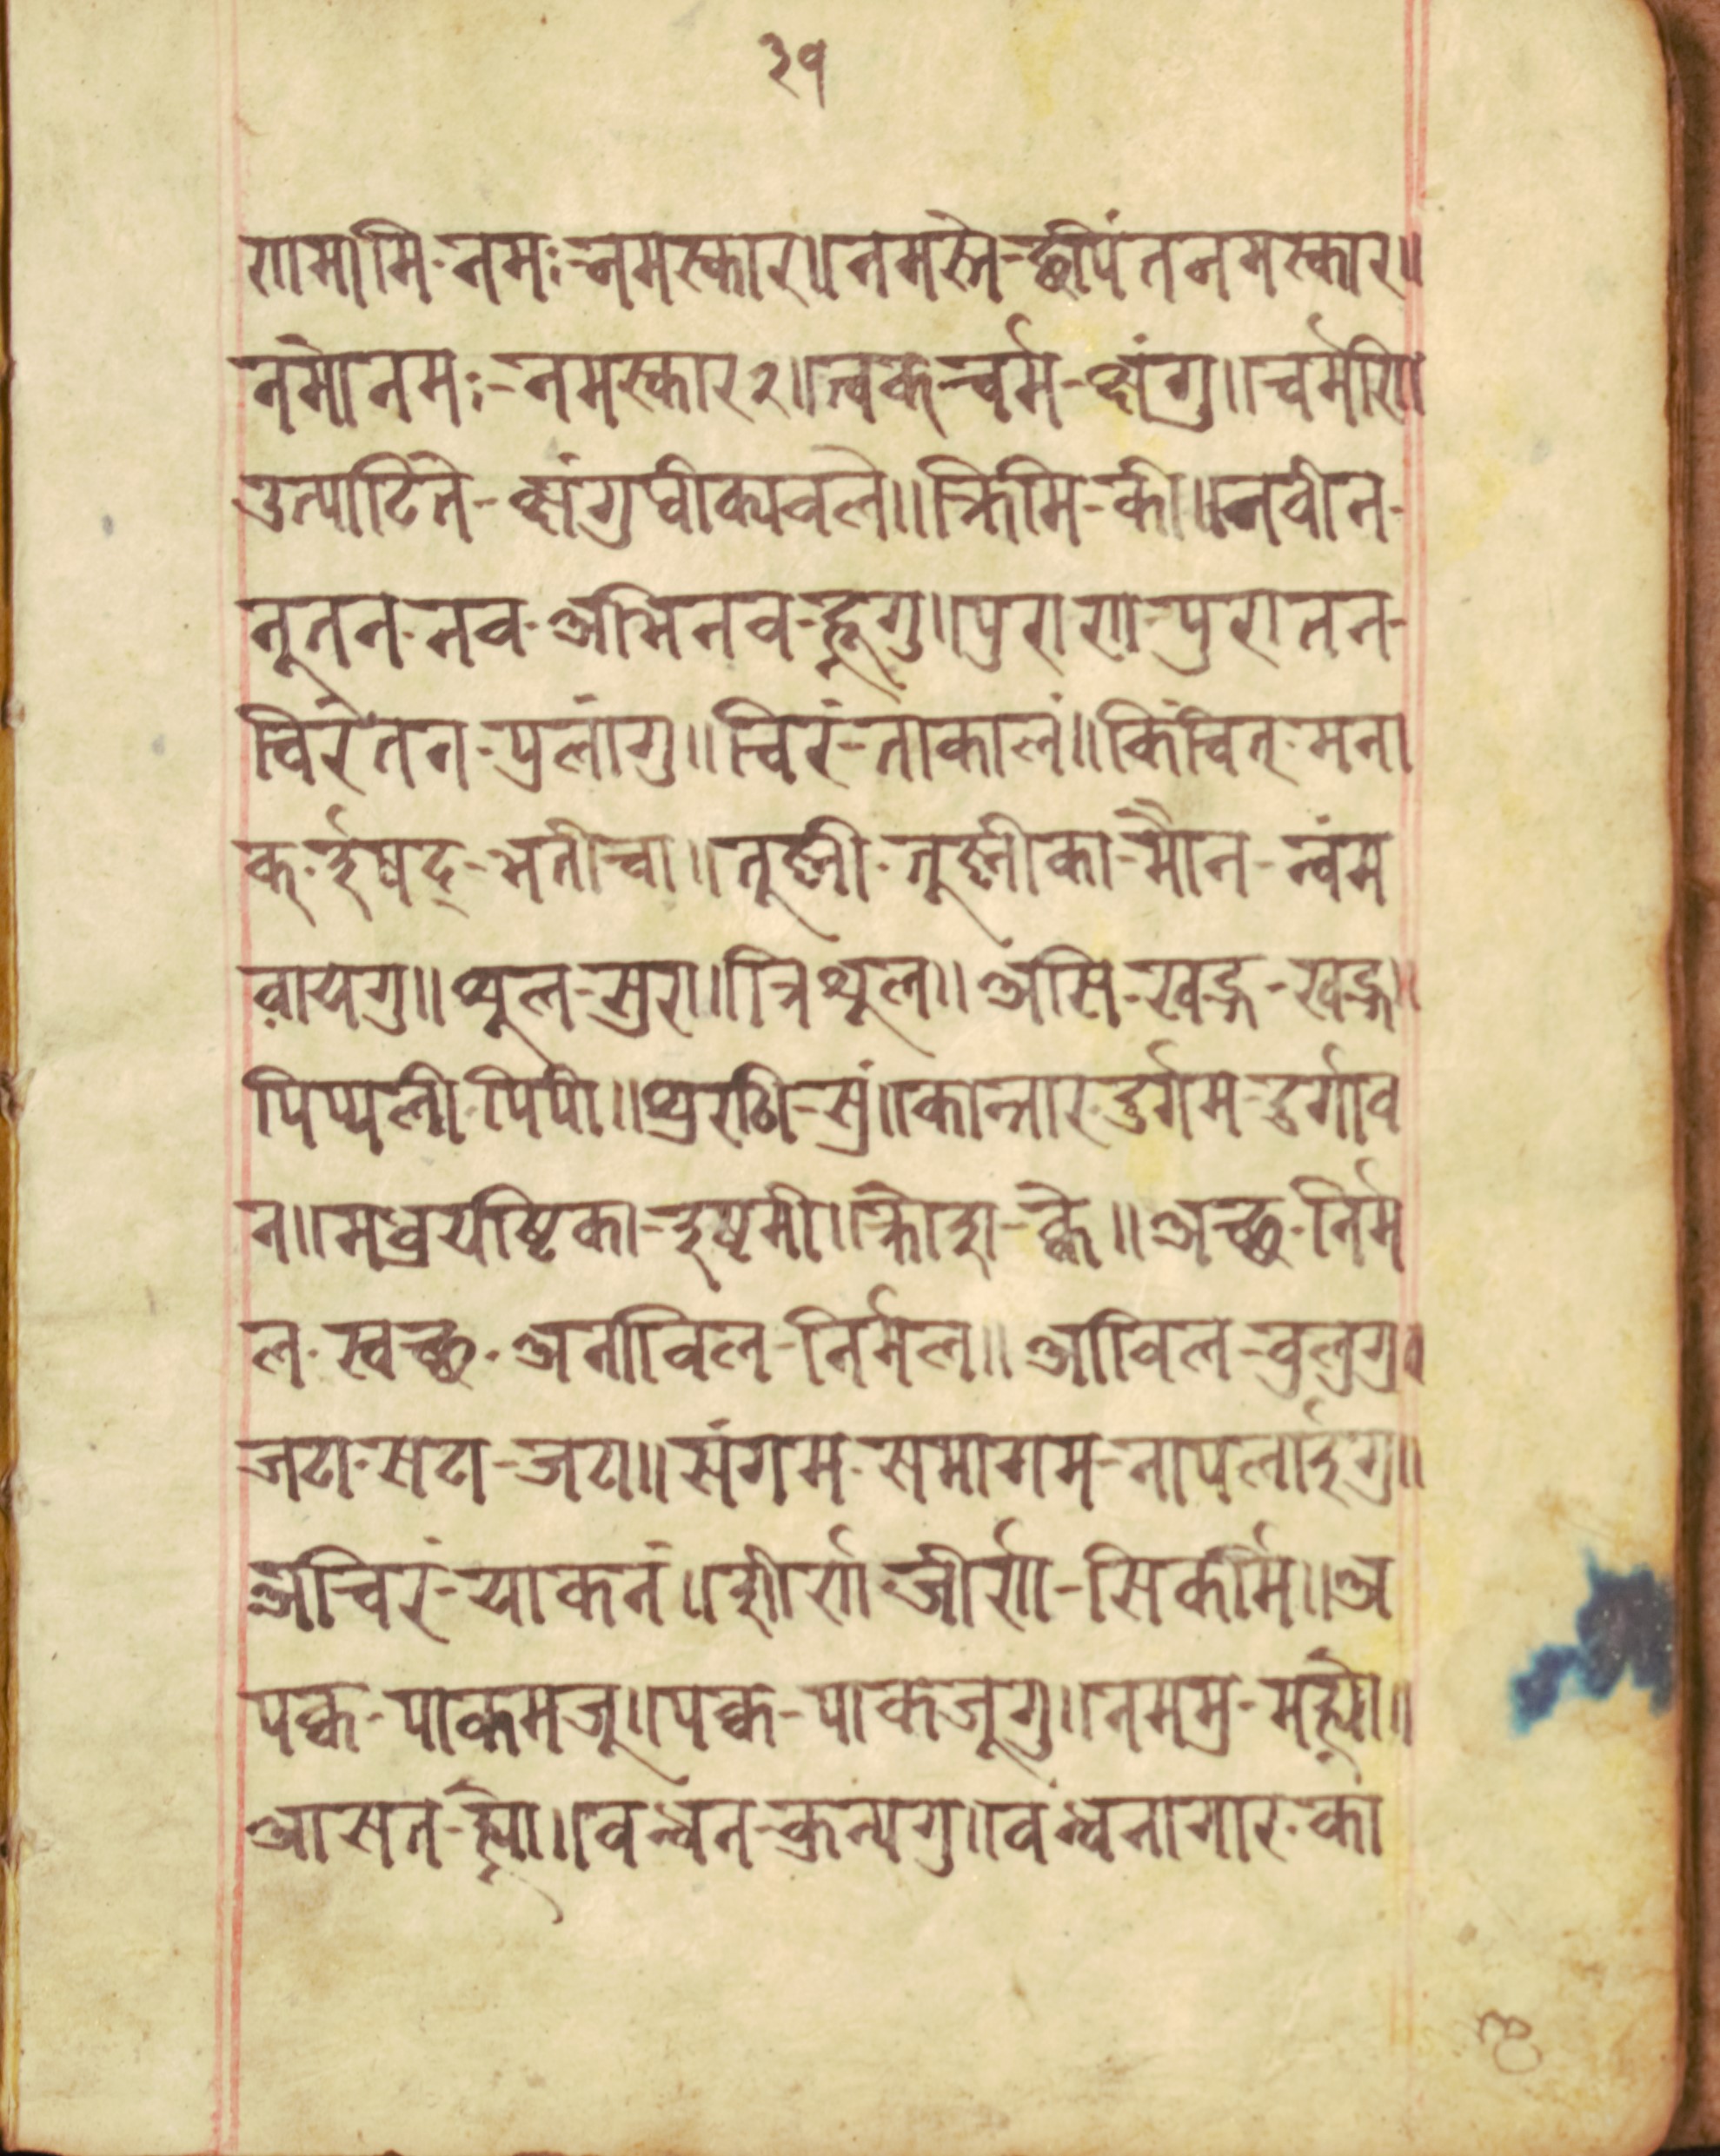 २१
णमामि-नमः-नमस्कार॥नमस्ते-छीपंतनमस्कार॥
नमोनमः-नमस्कार२॥त्वक्-चर्म-क्षंगु॥चर्मणि
उत्पाटिते-क्षंगुघीक्यवले॥क्रिमि-की॥नवीन-
नूतन-नव-अभिनव-ह्नूगु॥पुराण-पुरातन-
चिरंतन-पुलांगु॥चिरं-ताकालं॥किंचित्-मना
क्-ईषद्-भतीचा॥तूष्णी-तूष्णीका-मौन-न्वंम
वायेगु॥शूल-सुरा॥त्रिशूल॥असि-खड्ग-खड्ग॥
पिप्पली-पिपी॥शुरठी-सुं॥कान्तार-दुर्गम-दुर्गाव
न॥मधुयष्टिका-इष्टमी॥क्रोडा-क्वे॥अच्छ-निर्म
ल-स्वच्छ-अनाविल-निर्मल॥आविल-वुलुगु॥
जटा-सटा-जटा॥संगम-समागम-नापलाईगु॥
अचिरं-याकनं॥शीर्ण-जीर्ण-सिकर्मि॥अ
पक्व-पाकमजू॥पक्व-पाकजूगु॥नमम्र-मह्यो॥
आसन-ह्यो॥वन्धन-कुन्यगु॥वंन्धनागार-का